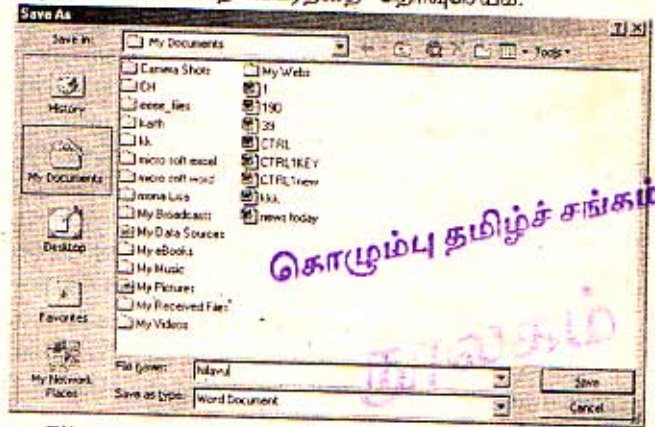 Save As
Save in:
My Documents
Tools
History
My Documents
Desktop
Favorites
My Network
Places
Camera Shots
CH
eeee_files
karth
kk
micro soft excel
micro soft word
mona Lisa
My Broadcasts
My Data Sources
My eBooks
My Music
My Pictures
My Received Files
My Videos
My Webs
1
190
39
CTRL
CTRL1KEY
CTRL1new
kkk
news today
கொழும்பு தமிழ்ச் சங்கம்
நூலகம்
File name:
Nilavu
Save
Save as type:
Word Document
Cancel